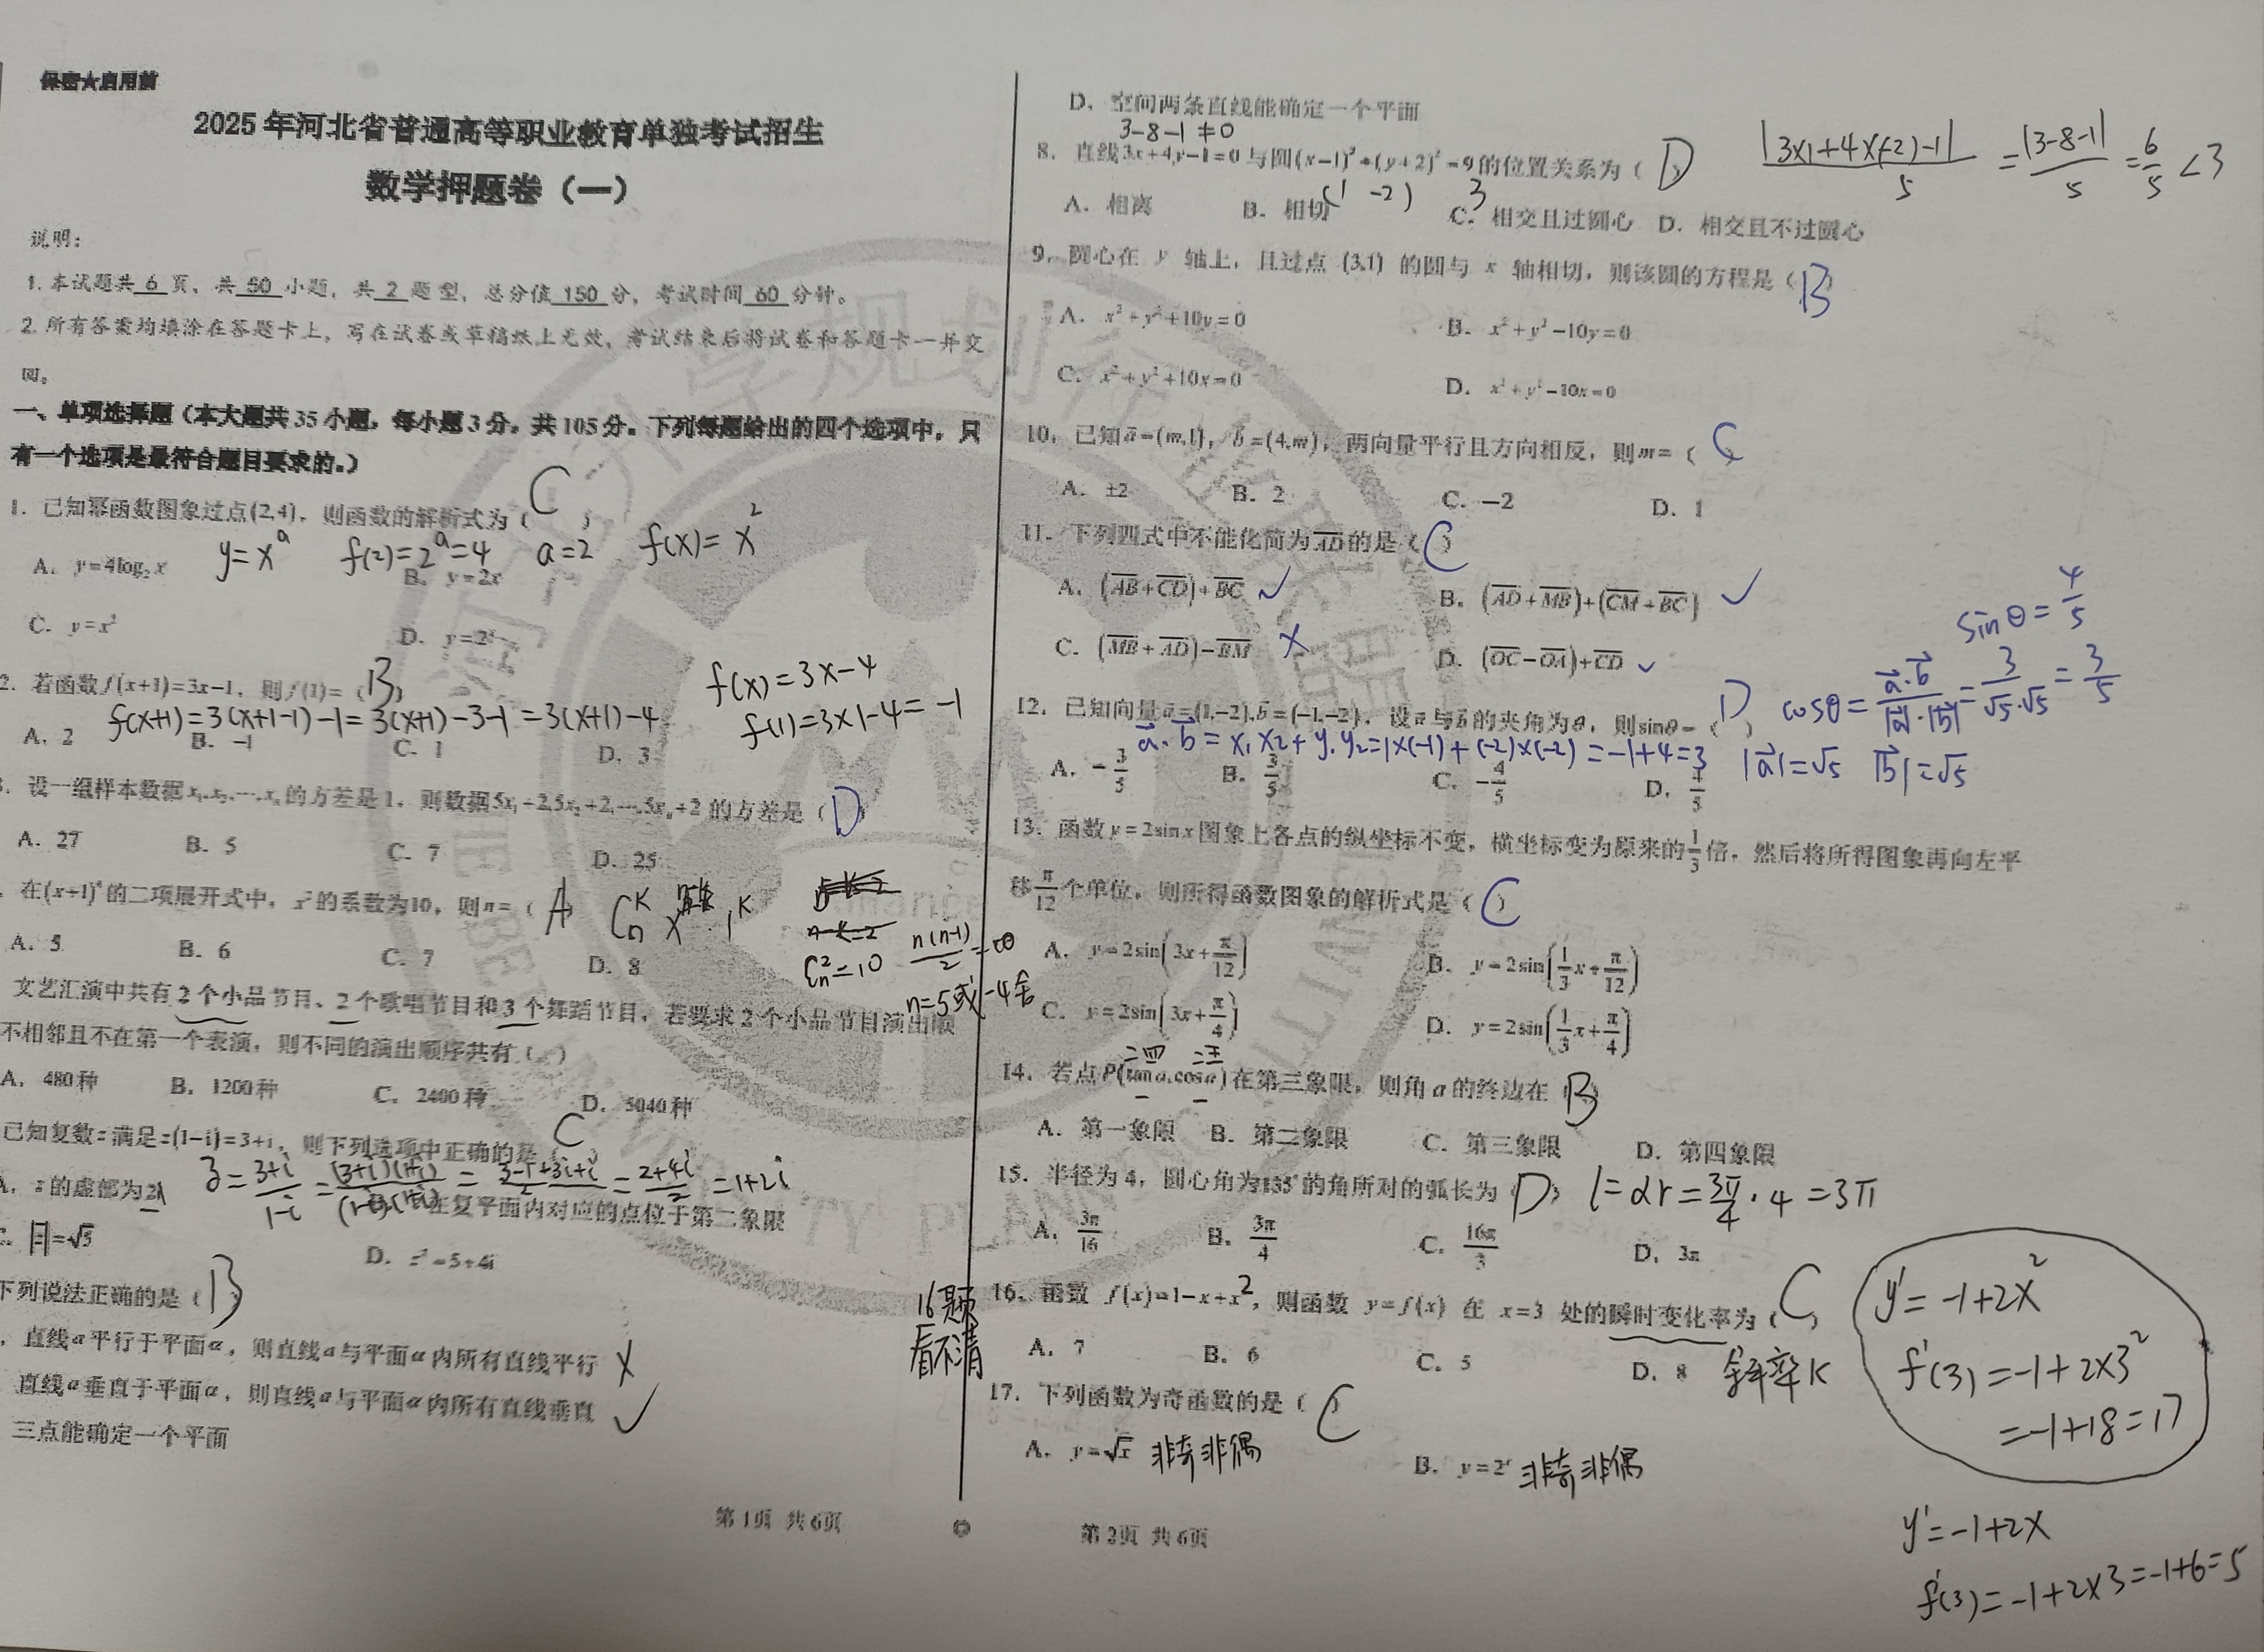 保密★启用前
2025年河北省普通高等职业教育单独考试招生
数学押题卷（一）
说明：
1. 本试题共 6 页，共 50 小题，共 2 题型，总分值 150 分，考试时间 60 分钟。
2. 所有答案均填涂在答题卡上，写在试卷或草稿纸上无效，考试结束后将试卷和答题卡一并交
回。
一、单项选择题（本大题共35小题，每小题3分，共105分。下列每题给出的四个选项中，只
有一个选项是最符合题目要求的。）
1. 已知幂函数图象过点(2,4)，则函数的解析式为（C）
y=x^a f(2)=2^a=4 a=2 f(x)=x²
A. y=4log₂x B. y=2x
C. y=x² D. y=2ˣ
2. 若函数f(x+1)=3x-1，则f(1)=（B）
f(x)=3x-4
f(x+1)=3(x+1-1)-1=3(x+1)-3-1=3(x+1)-4
f(1)=3×1-4=-1
A. 2 B. -1 C. 1 D. 3
. 设一组样本数据x₁,x₂,…,xₙ的方差是1，则数据5x₁+2,5x₂+2,…,5xₙ+2的方差是（D）
A. 27 B. 5 C. 7 D. 25
. 在(x+1)ⁿ的二项展开式中，x²的系数为10，则n=（A）
A. 5 B. 6 C. 7 D. 8
Cₙ²=10 n(n-1)/2=10
n=5或-4舍
文艺汇演中共有2个小品节目、2个歌唱节目和3个舞蹈节目，若要求2个小品节目演出顺
不相邻且不在第一个表演，则不同的演出顺序共有（ ）
A. 480种 B. 1200种 C. 2400种 D. 5040种
已知复数z满足z(1-i)=3+i，则下列选项中正确的是（C）
A. z的虚部为2i
在复平面内对应的点位于第二象限
C. |z|=√5 D. z²=5+4i
下列说法正确的是（B）
. 直线a平行于平面α，则直线a与平面α内所有直线平行 ×
直线a垂直于平面α，则直线a与平面α内所有直线垂直 ✓
三点能确定一个平面
第1页 共6页
D. 空间两条直线能确定一个平面
3-8-1≠0
8. 直线3x+4y-1=0与圆(x-1)²+(y+2)²=9的位置关系为（D）
|3×1+4×(-2)-1|/5 =|3-8-1|/5=6/5<3
(1 -2) 3
A. 相离 B. 相切 C. 相交且过圆心 D. 相交且不过圆心
9. 圆心在 y 轴上，且过点 (3,1) 的圆与 x 轴相切，则该圆的方程是（B）
A. x²+y²+10y=0 B. x²+y²-10y=0
C. x²+y²+10x=0 D. x²+y²-10x=0
10. 已知a=(m,1)，b=(4,m)，两向量平行且方向相反，则m=（C）
A. ±2 B. 2 C. -2 D. 1
11. 下列四式中不能化简为AD的是（C）
A. (AB+CD)+BC ✓ B. (AD+MB)+(CM+BC) ✓
C. (MB+AD)-BM × D. (OC-OA)+CD ✓
sinθ=4/5
12. 已知向量a=(1,-2),b=(-1,-2)，设a与b的夹角为θ，则sinθ=（D）
cosθ=a·b/|a|·|b|=3/√5·√5=3/5
a·b=x₁x₂+y₁y₂=1×(-1)+(-2)×(-2)=-1+4=3 |a|=√5 |b|=√5
A. -3/5 B. 3/5 C. -4/5 D. 4/5
13. 函数y=2sinx图象上各点的纵坐标不变，横坐标变为原来的1/3倍，然后将所得图象再向左平
移π/12个单位，则所得函数图象的解析式是（C）
A. y=2sin(3x+π/12) B. y=2sin(1/3x+π/12)
C. y=2sin(3x+π/4) D. y=2sin(1/3x+π/4)
二四 二三
14. 若点P(tanα,cosα)在第三象限，则角α的终边在（B）
A. 第一象限 B. 第二象限 C. 第三象限 D. 第四象限
15. 半径为4，圆心角为135°的角所对的弧长为（D） l=αr=3π/4·4=3π
A. 3π/16 B. 3π/4 C. 16π/3 D. 3π
16题
看不清
16. 函数 f(x)=1-x+x²，则函数 y=f(x) 在 x=3 处的瞬时变化率为（C）
A. 7 B. 6 C. 5 D. 8 斜率K
y'=-1+2x²
f'(3)=-1+2×3²
=-1+18=17
y'=-1+2x
f'(3)=-1+2×3=-1+6=5
17. 下列函数为奇函数的是（C）
A. y=√x 非奇非偶 B. y=2ˣ 非奇非偶
第2页 共6页